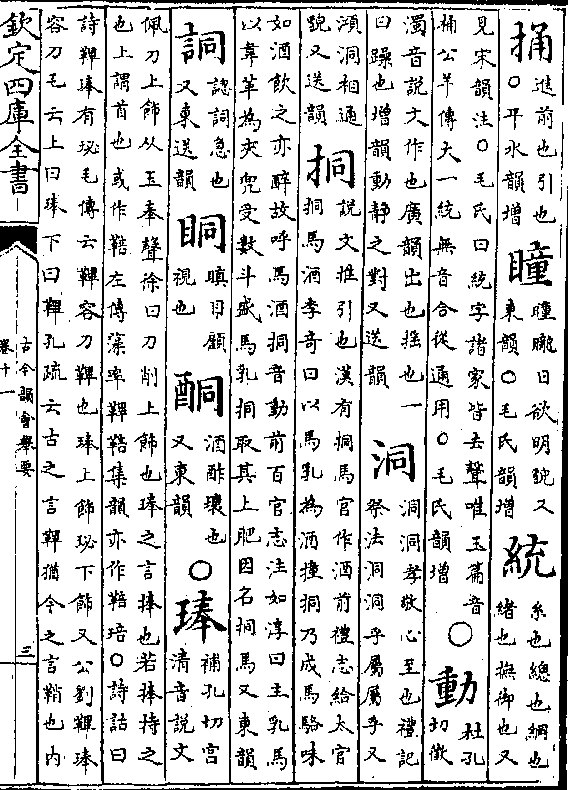 捅進前也引也
○平水韻增
瞳瞳曨日欲明貌又
東韻○毛氏韻增
統糸也總也綱也
緒也撫御也又
見宋韻注○毛氏曰統字諸家皆去聲唯玉篇音
桶公羊傳大一統無音合從通用○毛氏韻增
○動杜孔
切徵
濁音說文作也廣韻出也搖也一
曰躁也增韻動靜之對又送韻
洞洞洞孝敬心至也禮記
祭法洞洞乎屬屬乎又
澒洞相通
貌又送韻
挏說文推引也漢有挏馬官作酒前禮志給太官
挏馬酒李奇曰以馬乳為酒撞挏乃成馬駱味
如酒飲之亦醉故呼馬酒挏音動前百官志注如淳曰主乳馬
以韋革為夾兜受數斗盛馬乳挏取其上肥因名挏馬又東韻
詷誋詷急也
又東送韻
眮瞋目顧
視也
酮酒酢壞也
又東韻
○琫補孔切宮
清音說文
佩刀上飾从玉奉聲徐曰刀削上飾也琫之言捧也若捧持之
也上謂首也或作鞛左傳藻率鞞鞛集韻亦作鞛琣○詩詁曰
詩鞞琫有珌毛傳云鞞容刀鞞也琫上飾珌下飾又公劉鞞琫
容刀毛云上曰琫下曰鞞孔疏云古之言鞞猶今之言鞘也内
欽定四庫全書
古今韻會舉要
卷十一
三